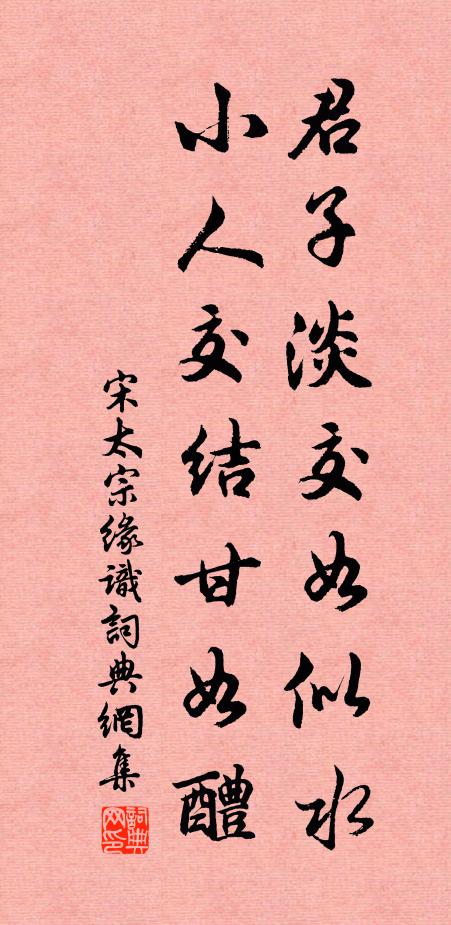 君子淡交如似水
小人交結甘如醴
宋太宗緣識詞典網集
詞典网印